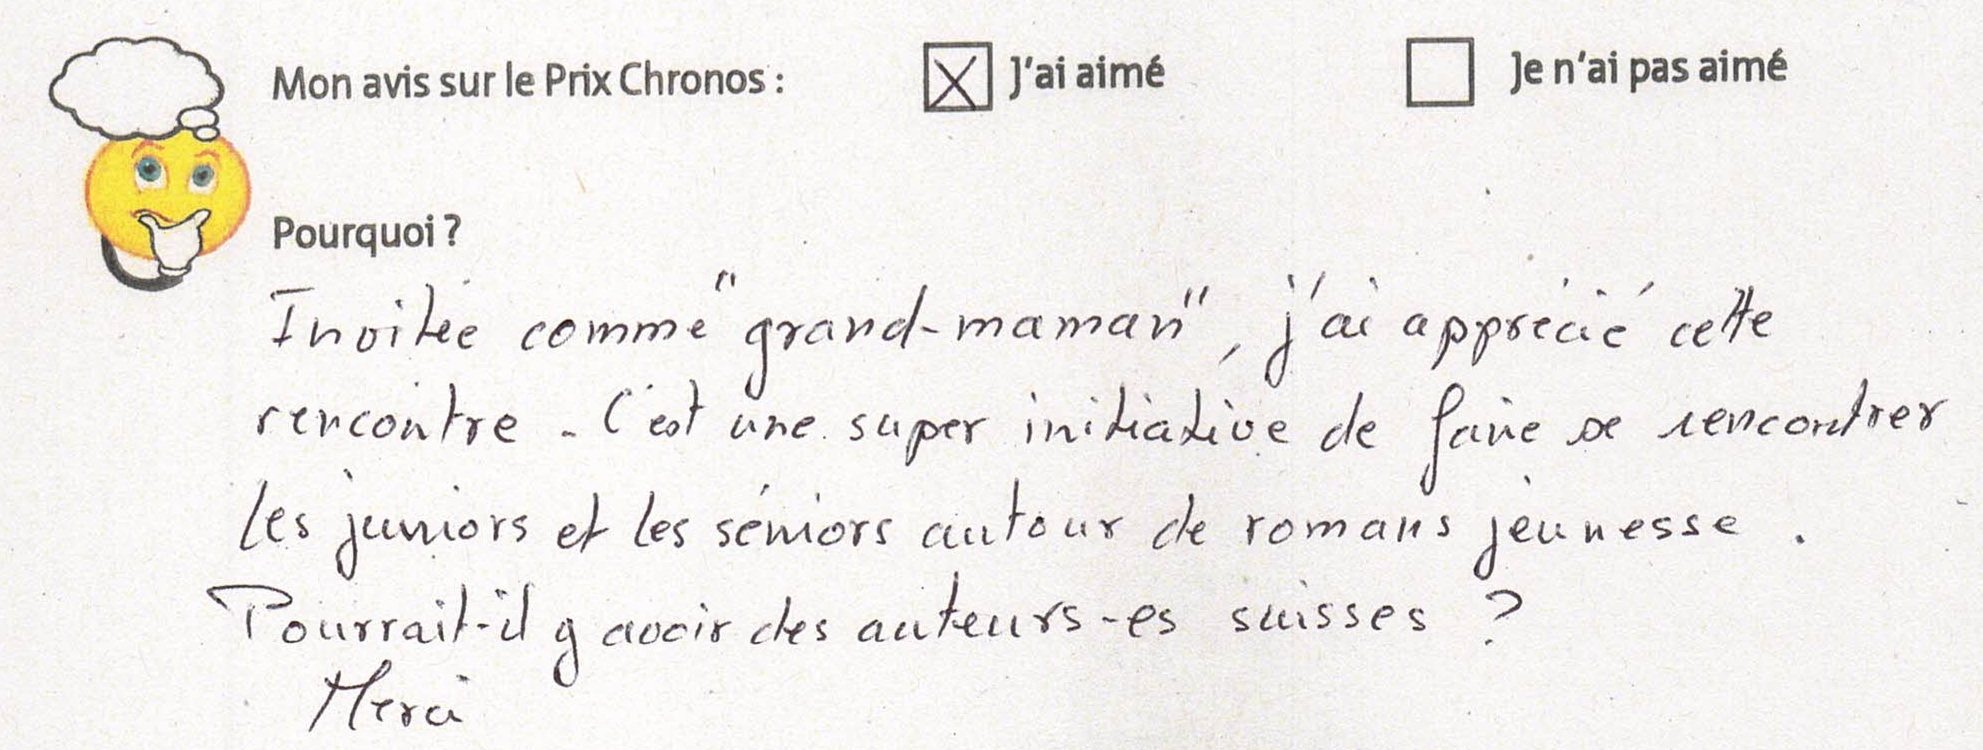 Mon avis sur le Prix Chronos : ☒ J'ai aimé ☐ Je n'ai pas aimé
Pourquoi ?
Invitée comme "grand-maman", j'ai apprécié cette
rencontre - C'est une super initiative de faire se rencontrer
les juniors et les séniors autour de romans jeunesse .
Pourrait-il y avoir des auteurs-es suisses ?
Merci